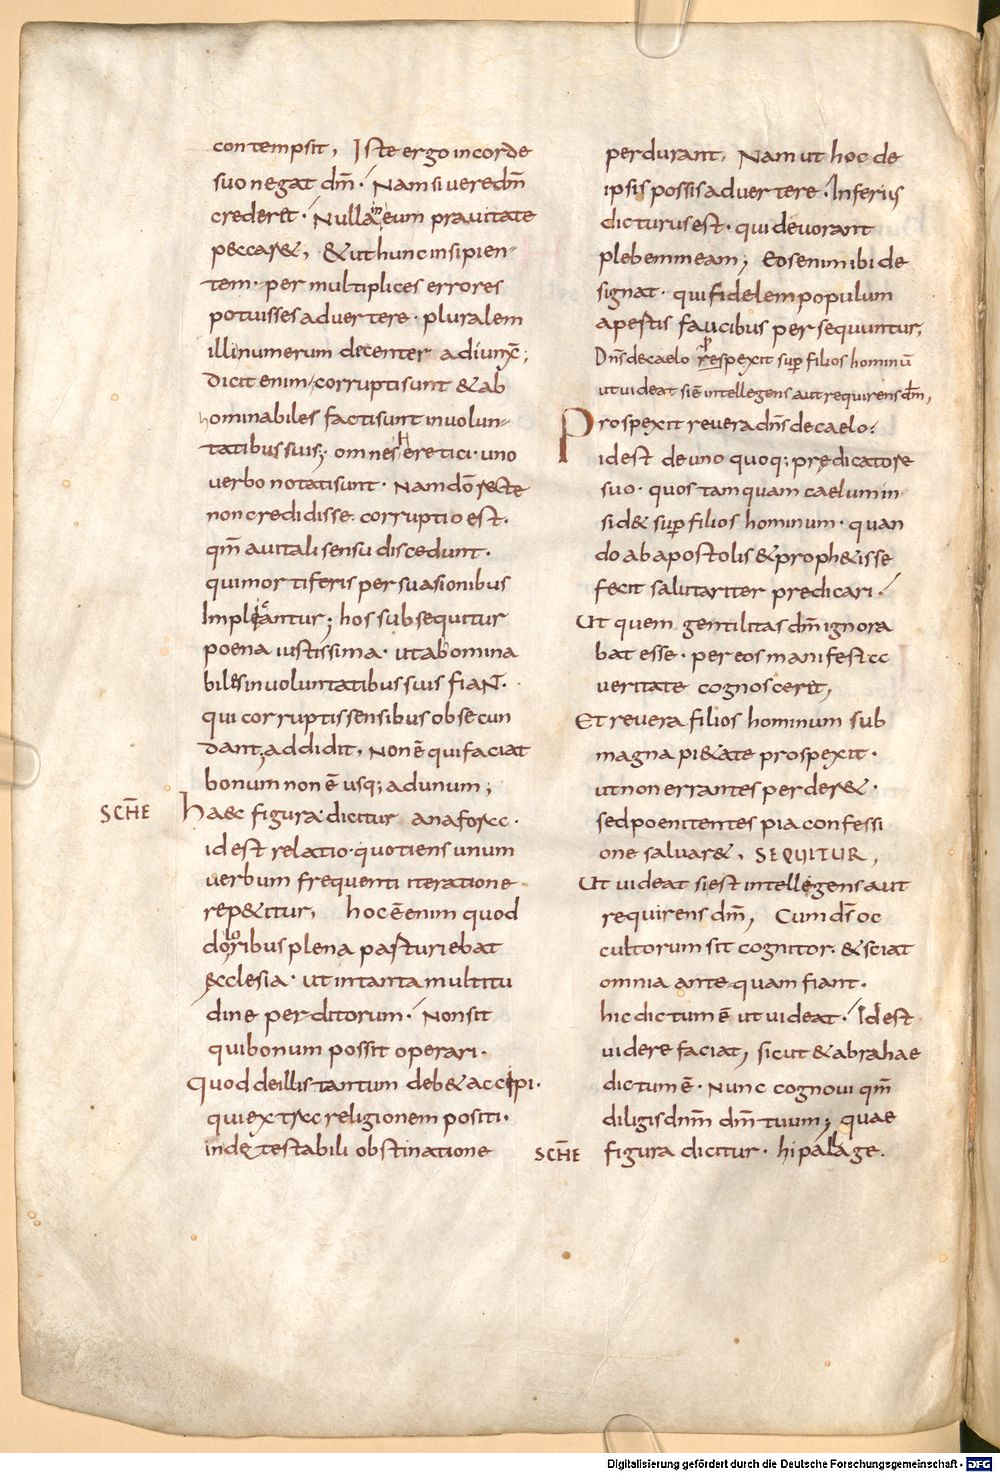 contempsit, Iste ergo incorde
suo negat dm̄. Nam si vere dm̄
crederet. Nulla in eum pravitate
peccar&, & ut hunc insipien-
tem. per multiplices errores
potuisses advertere. pluralem
illi numerum decenter adiunx̄;
dicit enim, corrupti sunt & ab
hominabiles facti sunt in volun-
tatibus suis; omnes heretici. uno
verbo notati sunt. Nam dō recte
non credidisse. corruptio est.
qm̄ a vitali sensu discedunt.
qui mortiferis persuasionibus
Implentur; hos subsequitur
poena iustissima. ut abomina
biles in voluntatibus suis fiaNt.
qui corruptis sensibus obsecun
dant; addidit, Non ē qui faciat
bonum non ē usq; ad unum;
SCHE
Haec figura dicitur anafora.
id est relatio. quotiens unum
verbum frequenti iteratione
rep&itur, hoc ē enim quod
doloribus plena parturiebat
ęcclesia. ut in tanta multitu
dine perditorum. Non sit
qui bonum possit operari.
Quod de illis tantum deb& accipi.
qui extra religionem positi.
indetestabili obstinatione
perdurant, Nam ut hoc de
ipsis possis advertere. Inferius
dicturus est. qui devorant
plebem meam; Eos enim ibi de
signat. qui fidelem populum
a pestis faucibus persequuntur;
Dn̄s de caelo prospexit sup filios hominū
ut videat si ē intellegens aut requirens dm̄,
Prospexit revera dn̄s de caelo.
id est de uno quoq; prędicatore
suo. quos tamquam caelum in
sid& sup filios hominum. quan
do ab apostolis & proph&is se
fecit salutariter predicari.
Ut quem gentilitas dm̄ ignora
bat esse. per eos manifesta
veritate cognosceret,
Et revera filios hominum sub
magna pi&ate prospexit.
ut non errantes perder&.
sed poenitentes pia confessi
one salvar&, SEQUITUR,
Ut videat si est intellegens aut
requirens dm̄, Cum ds̄ oc
cultorum sit cognitor. & sciat
omnia ante quam fiant.
hic dictum ē ut videat. Id est
videre faciat, sicut & abrahae
dictum ē. Nunc cognovi qm̄
diligis dnm̄ dm̄ tuum; quae
SCHE figura dicitur. hipallage.
Digitalisierung gefördert durch die Deutsche Forschungsgemeinschaft - DFG